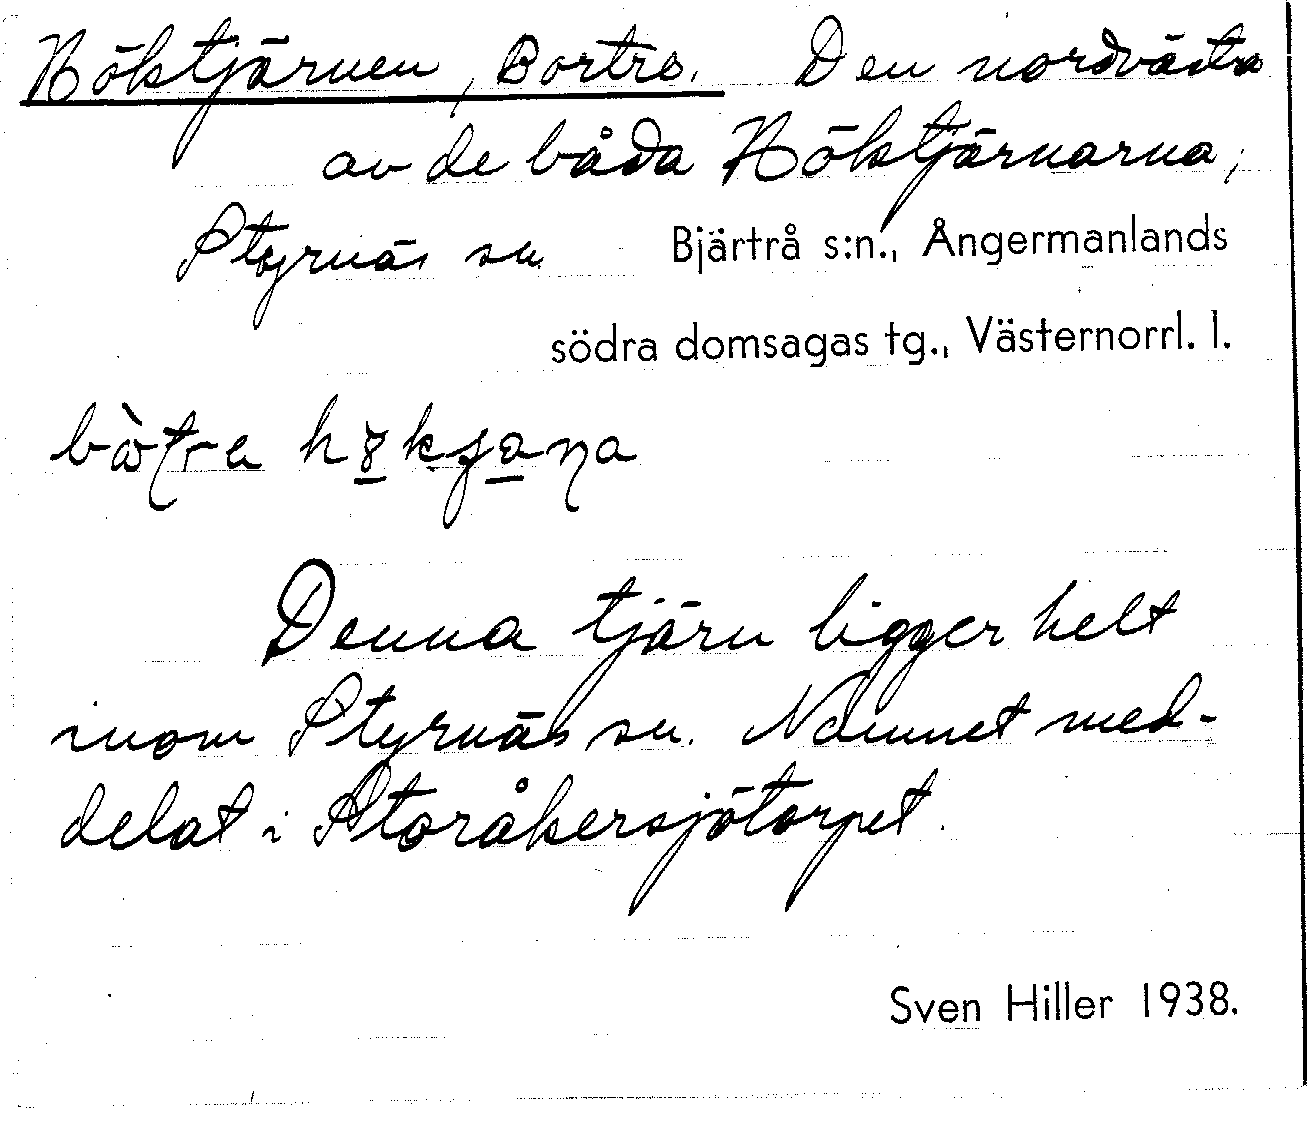 Höktjärnen, Bortre. Den nordvästra
av de båda Höktjärnarna,
Styrnäs sn. Bjärtrå s:n., Ångermanlands
södra domsagas tg., Västernorrl. l.
Denna tjärn ligger helt
inom Styrnäs sn. Namnet med-
delat i Storåkersjötorpet.
Sven Hiller 1938.